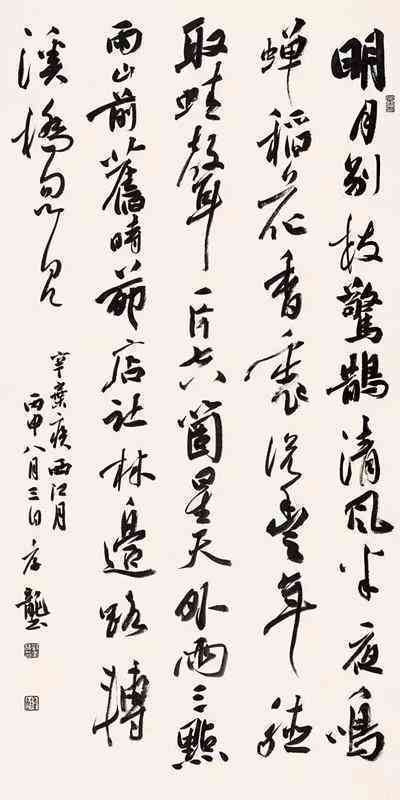 明月别枝驚鵲清風半夜鳴
蟬稻花香裏說豐年聽
取蛙聲一片七八箇星天外兩三點
雨山前舊時茆店社林邊路轉
溪橋忽見
辛棄疾西江月
丙申八月三日龔